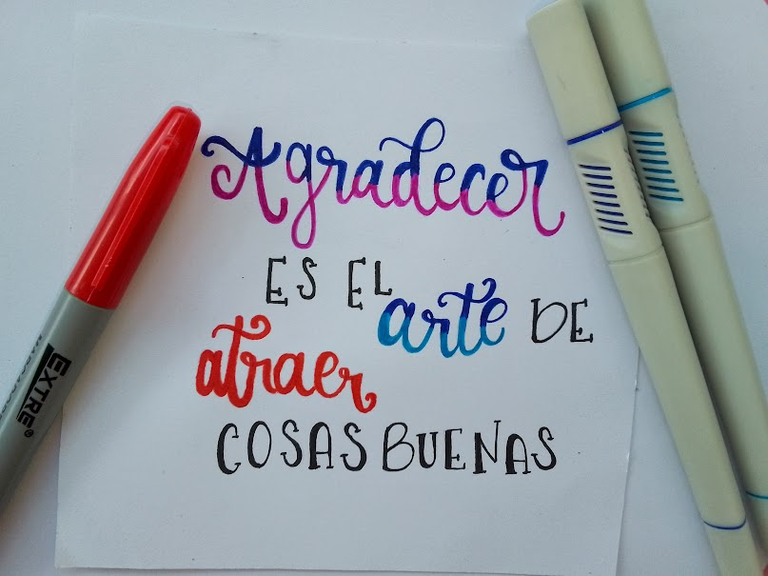 Agradecer
ES EL arte DE
atraer
COSAS BUENAS
EXTRE®